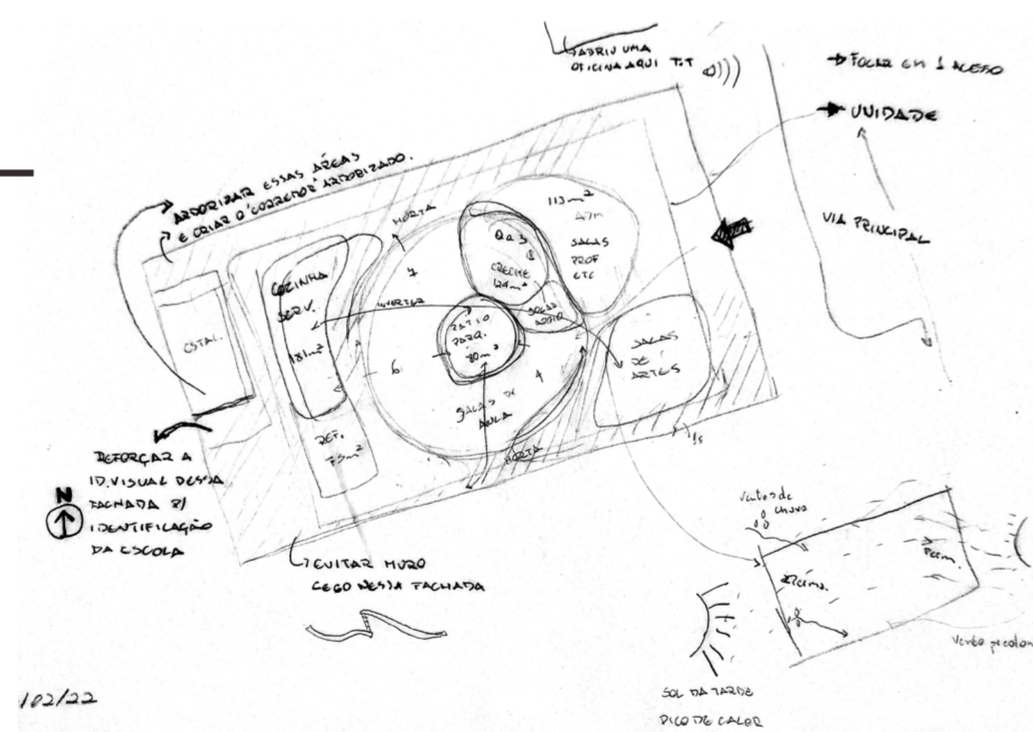 ABRIU UMA
OFICINA AQUI T.T
→ FOCAR EM 1 ACESO
→ UNIDADE
VIA PRINCIPAL
ARBORIZAR ESSAS ÁREAS
E CRIAR O CORREDOR ARBORIZADO.
HORTA
113m²
ADM
SALAS
PROF
ETC
0 a 3
CRECHE
124m²
COZINHA
SERV.
181m²
7
INVERTER
PÁTIO
PARQ.
80m²
SALAS
DE
ARTES
ESTAC.
6
4
SALAS DE
AULA
REF.
75m²
HORTA
REFORÇAR A
ID. VISUAL DESSA
FACHADA P/
IDENTIFICAÇÃO
DA ESCOLA
N
EVITAR MURO
CEGO NESSA FACHADA
Ventos de
chuva
Perm.
Perm.
SOL DA TARDE
PICO DE CALOR
/02/22